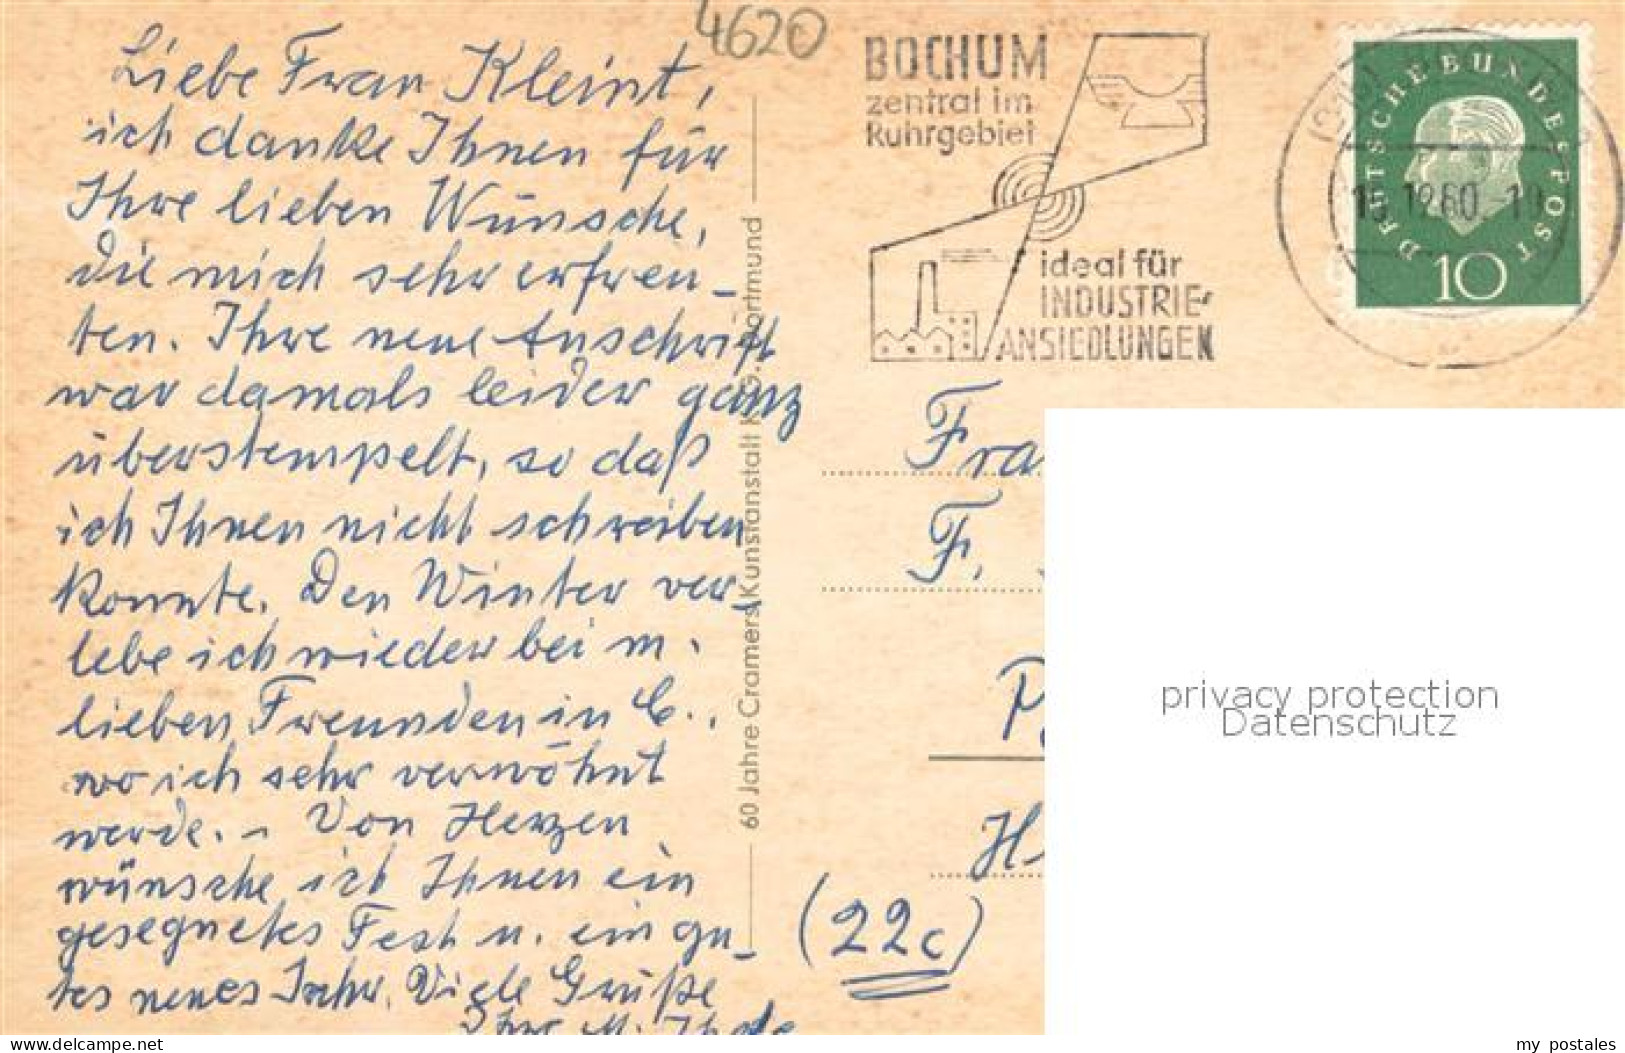 4620
Liebe Frau Kleint,
ich danke Ihnen für
Ihre lieben Wünsche,
die mich sehr erfreu-
ten. Ihre neue Anschrift
war damals leider ganz
überstempelt, so daß
ich Ihnen nicht schreiben
konnte. Den Winter ver-
lebe ich wieder bei m.
lieben Freunden in C.,
wo ich sehr verwöhnt
werde. – Von Herzen
wünsche ich Ihnen ein
gesegnetes Fest u. ein gu-
tes neues Jahr. Viele Grüße
Ihre M.
60 Jahre Cramers Kunstanstalt KG. Dortmund
BOCHUM
zentral im
Ruhrgebiet
ideal für
INDUSTRIE-
ANSIEDLUNGEN
DEUTSCHE BUNDESPOST
12.60
10
Fra
F.
H
(22c)
privacy protection
Datenschutz
www.delcampe.net
my_postales